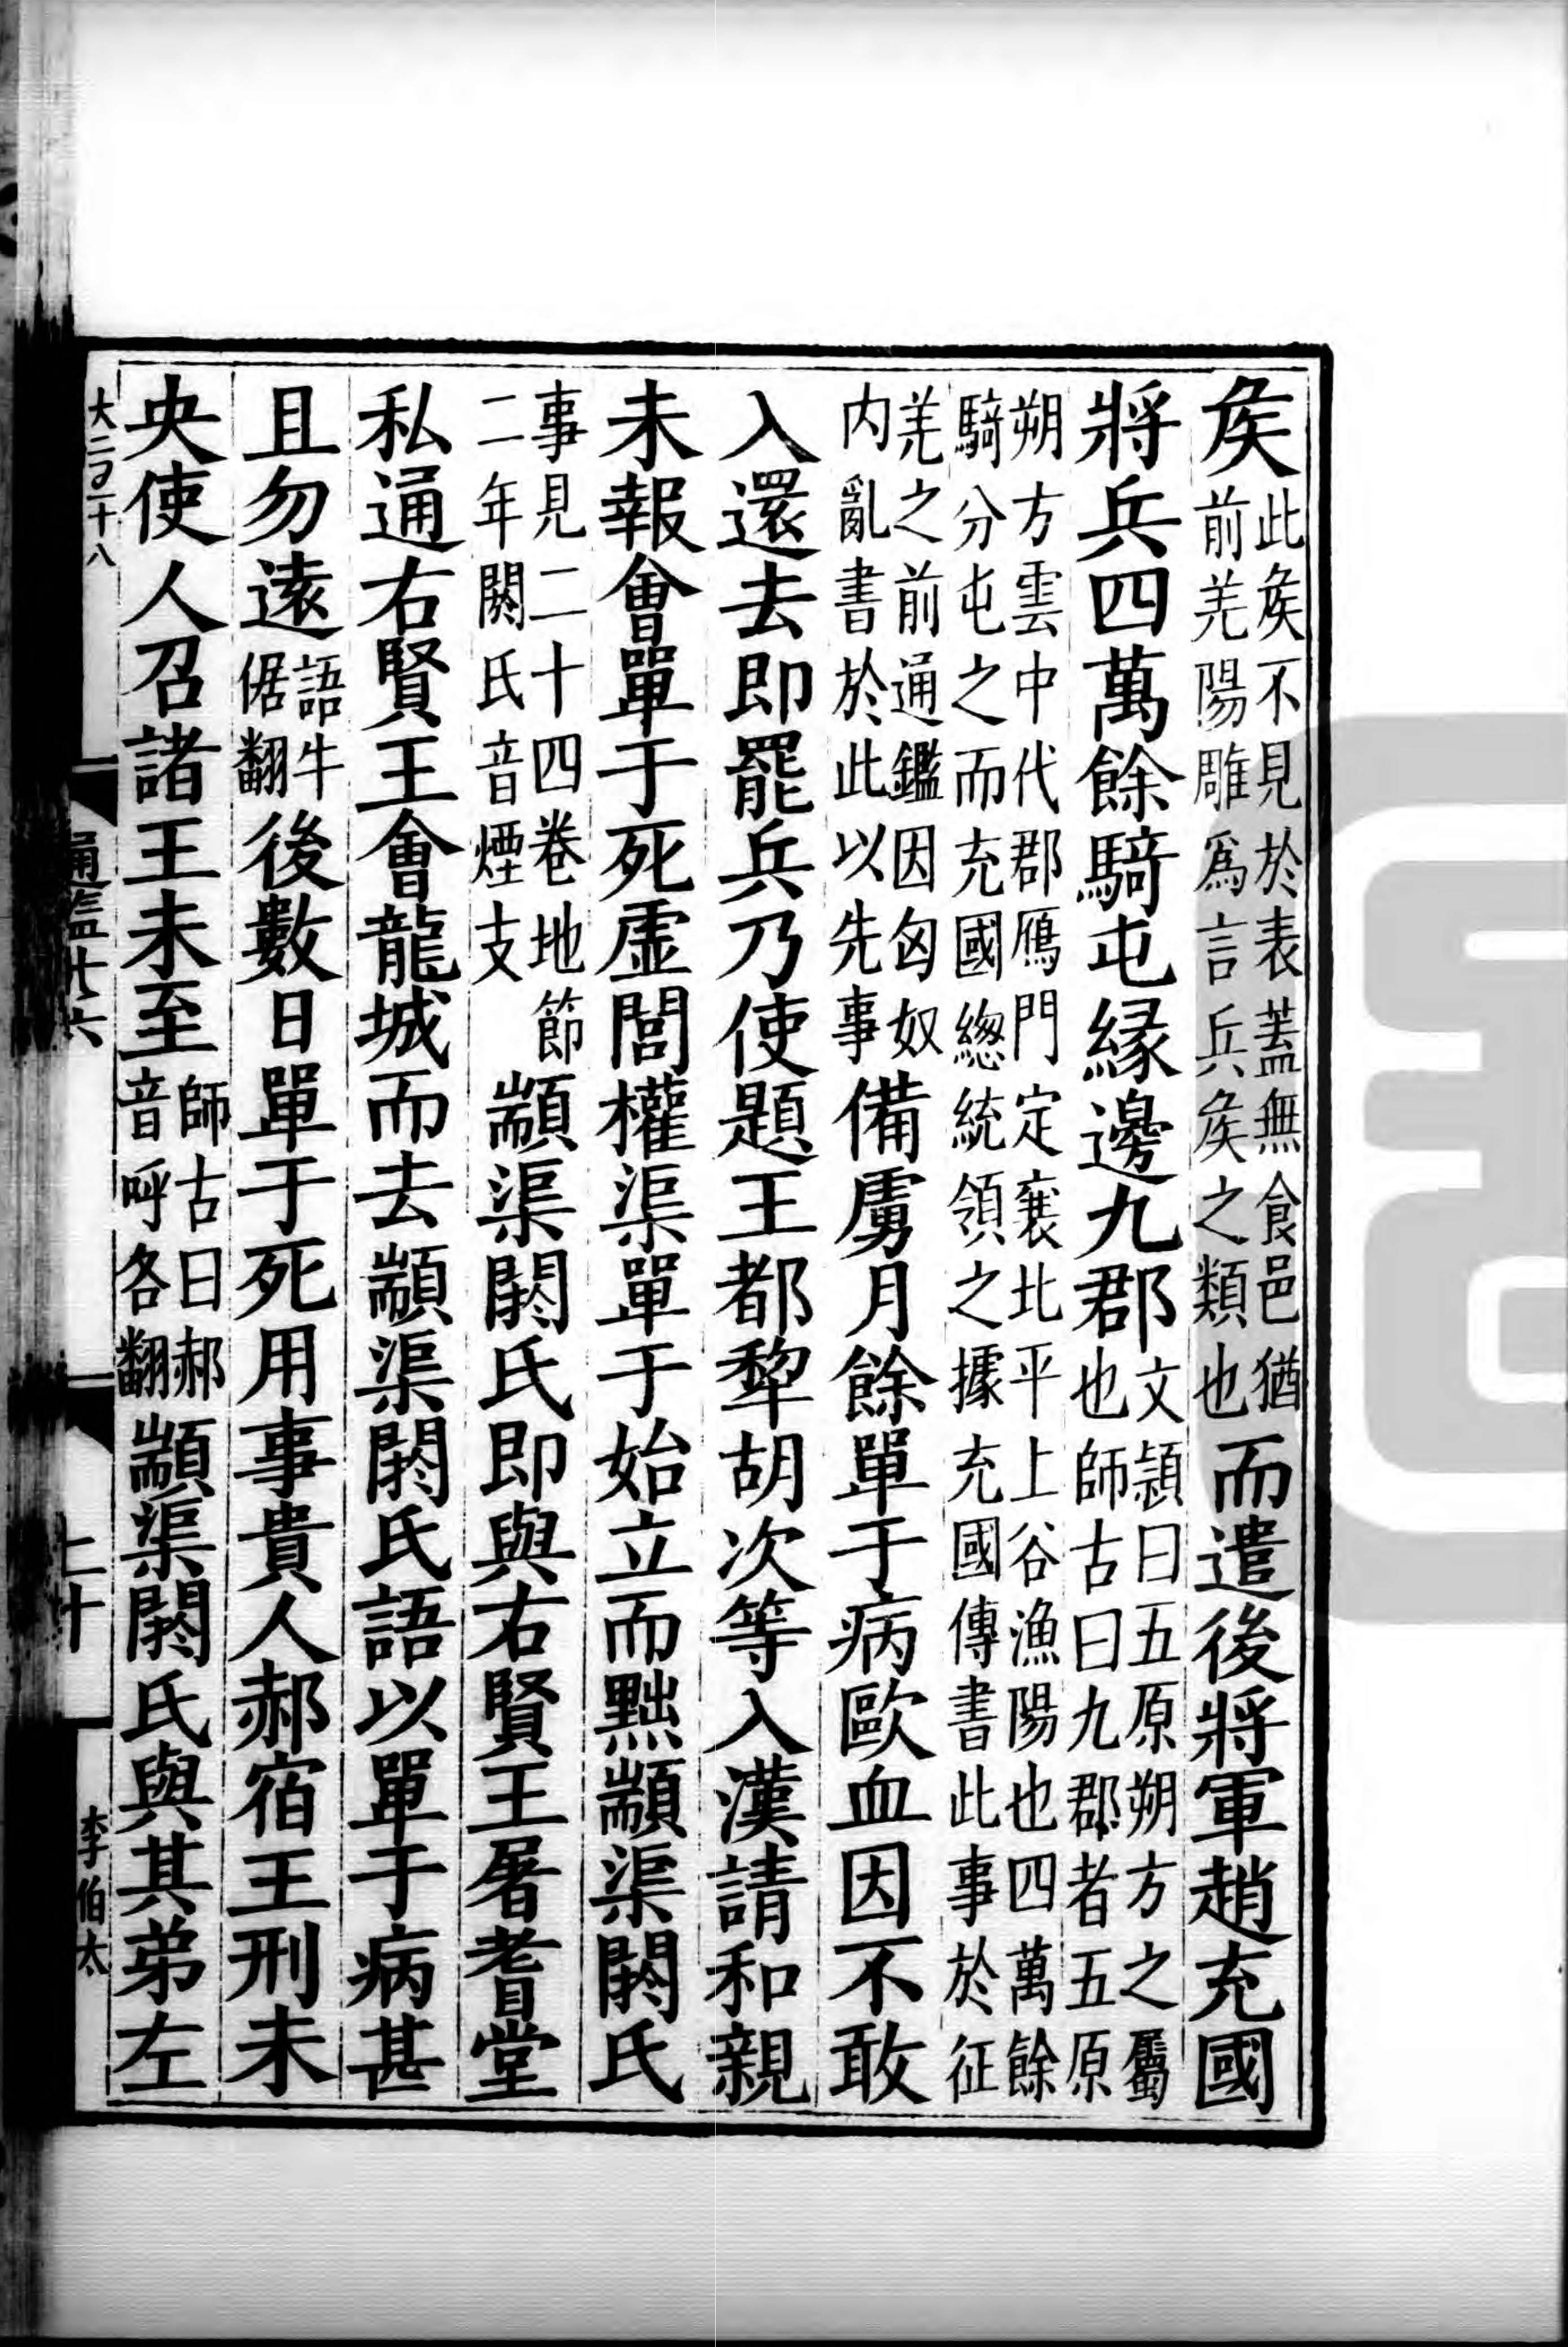 矦此矦不見於表蓋無食邑猶前羌陽雕爲言兵矦之類也而遣後將軍趙充國
將兵四萬餘騎屯緣邊九郡文潁曰五原朔方之屬也師古曰九郡者五原
朔方雲中代郡鴈門定襄北平上谷漁陽也四萬餘騎分屯之而充國緫統領之據充國傳書此事於征
羌之前通鑑因匈奴内亂書於此以先事備虜月餘單于病歐血因不敢
入還去即罷兵乃使題王都犂胡次等入漢請和親
未報會單于死虛閭權渠單于始立而黜顓渠閼氏
事見二十四卷地節二年閼氏音煙支顓渠閼氏即與右賢王屠耆堂
私通右賢王會龍城而去顓渠閼氏語以單于病甚
且勿遠語牛倨翻後數日單于死用事貴人郝宿王刑未
央使人召諸王未至師古曰郝音呼各翻顓渠閼氏與其弟左
通鑑廿六
李伯太